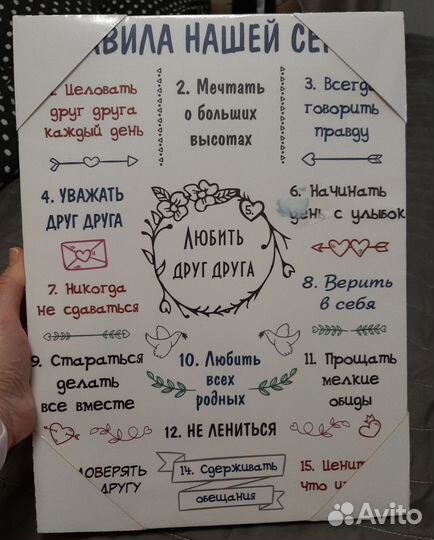 ВИЛА НАШЕЙ СЕ
1. Целовать
друг друга
каждый день
2. Мечтать
о больших
высотах
3. Всегда
говорить
правду
4. УВАЖАТЬ
ДРУГ ДРУГА
5.
ЛЮБИТЬ
ДРУГ ДРУГА
6. Начинать
день с улыбок
7. Никогда
не сдаваться
8. Верить
в себя
9. Стараться
делать
все вместе
10. Любить
всех
родных
11. Прощать
мелкие
обиды
12. НЕ ЛЕНИТЬСЯ
ДОВЕРЯТЬ
ДРУГУ
14. Сдерживать
обещания
15. Ценит
что
Avito